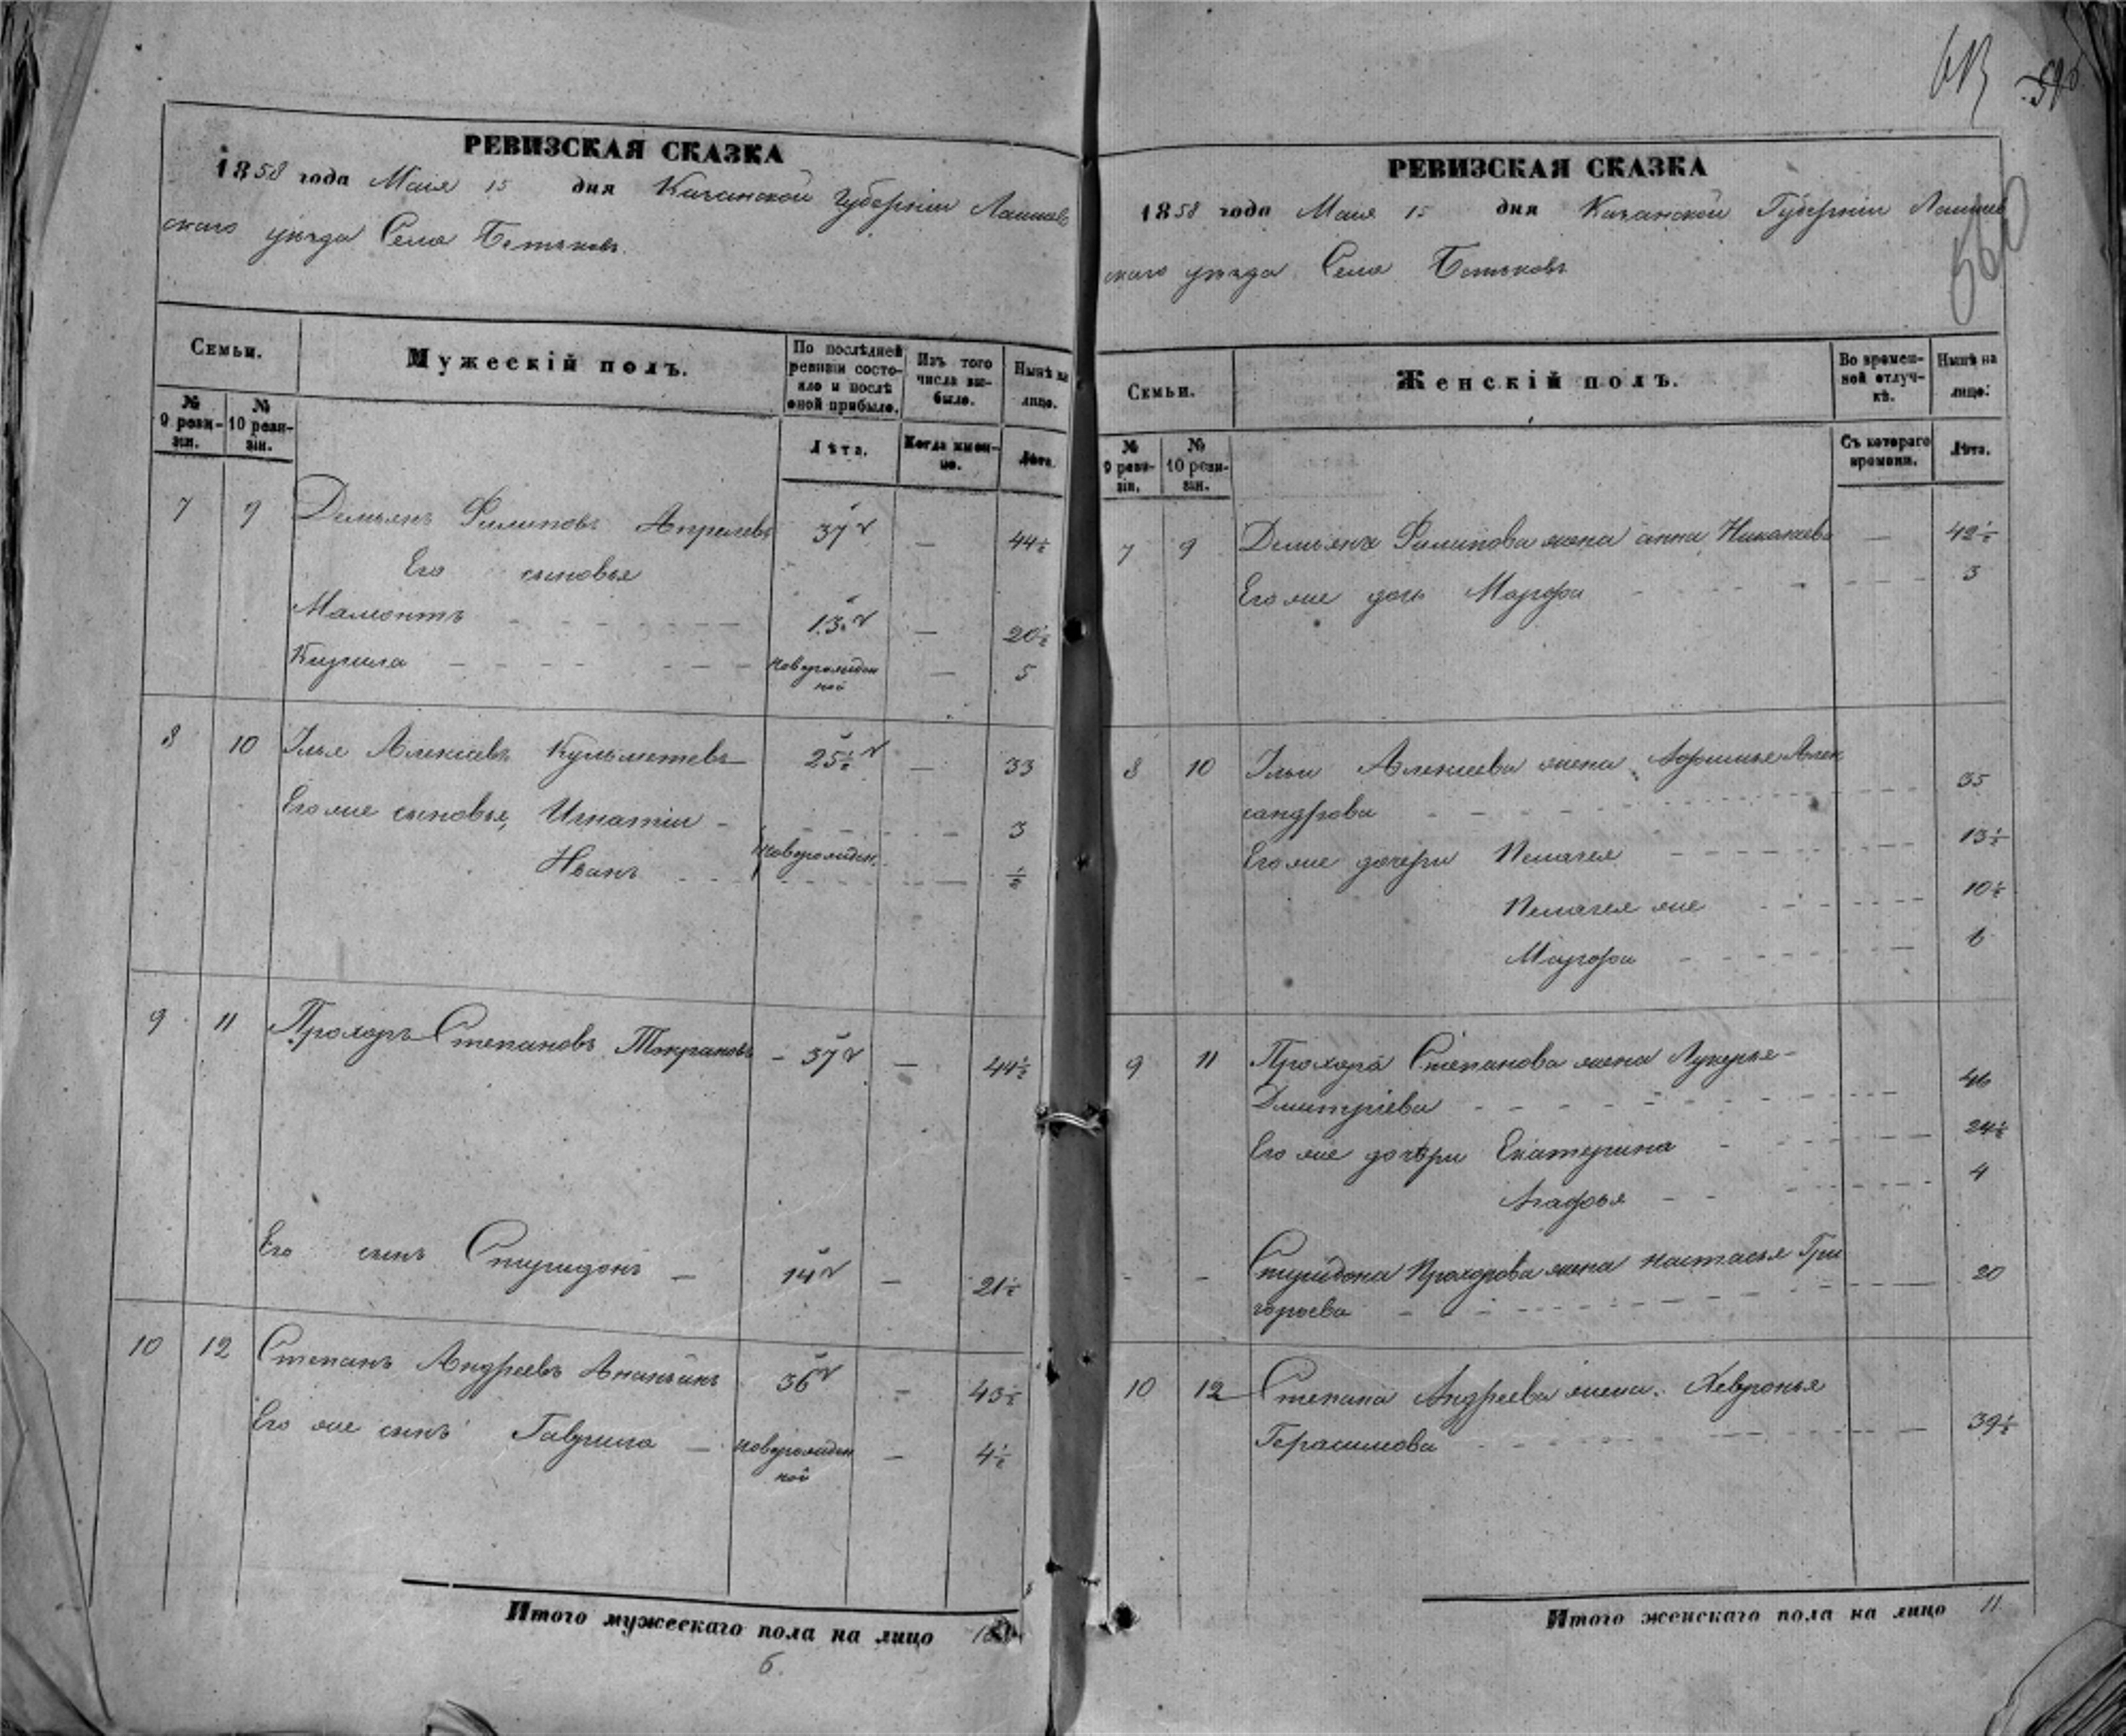 РЕВИЗСКАЯ СКАЗКА
1858 года Маія 15 дня Казанской Губерніи Лаишев
скаго уѣзда Села Бетьковъ.
Семьи.
Мужескій полъ.
По послѣдней ревизіи состояло и послѣ оной прибыло.
Изъ того числа выбыло.
Нынѣ на лицо.
№ 9 ревизіи.
№ 10 ревизіи.
Лѣта.
Когда именно.
Лѣта.
7 9 Демьянъ Филиповъ Апрелевъ 37 — 44½
Его сыновья
Мамонтъ 13 — 20½
Кирила новорожденной — 5
8 10 Илья Алексѣевъ Кульметевъ 25½ — 33
Его же сыновья, Игнатіи — 3
Иванъ новорожден. — ½
9 11 Прохоръ Степановъ Токрановъ — 37 — 44½
Его сынъ Спиридонъ — 14 — 21½
10 12 Степанъ Андреевъ Ананьинъ 36 — 43½
Его же сынъ Гаврила — новорожденной — 4½
Итого мужескаго пола на лицо
б.
РЕВИЗСКАЯ СКАЗКА
1858 года Маія 15 дня Казанской Губерніи Лаишев
скаго уѣзда Села Бетьковъ
560
Семьи.
Женскій полъ.
Во временной отлучкѣ.
Нынѣ на лицо.
№ 9 ревизіи.
№ 10 ревизіи.
Съ котораго времени.
Лѣта.
7 9 Демьяна Филипова жена анна Николаева — 42½
Его же дочь Марфа 3
8 10 Ильи Алексеева жена Афимья Алек
сандрова 35
Его же дочери Пелагея 13½
Пелагея же 10½
Марфа 6
9 11 Прохора Степанова жена Лукерья
Дмитріева 46
Его же дочери Екатерина 24½
Агафья 4
- - Спиридона Прохорова жена настасья Гри
горьева 20
10 12 Степана Андреева жена Хевронья
Герасимова 39½
Итого женскаго пола на лицо 11